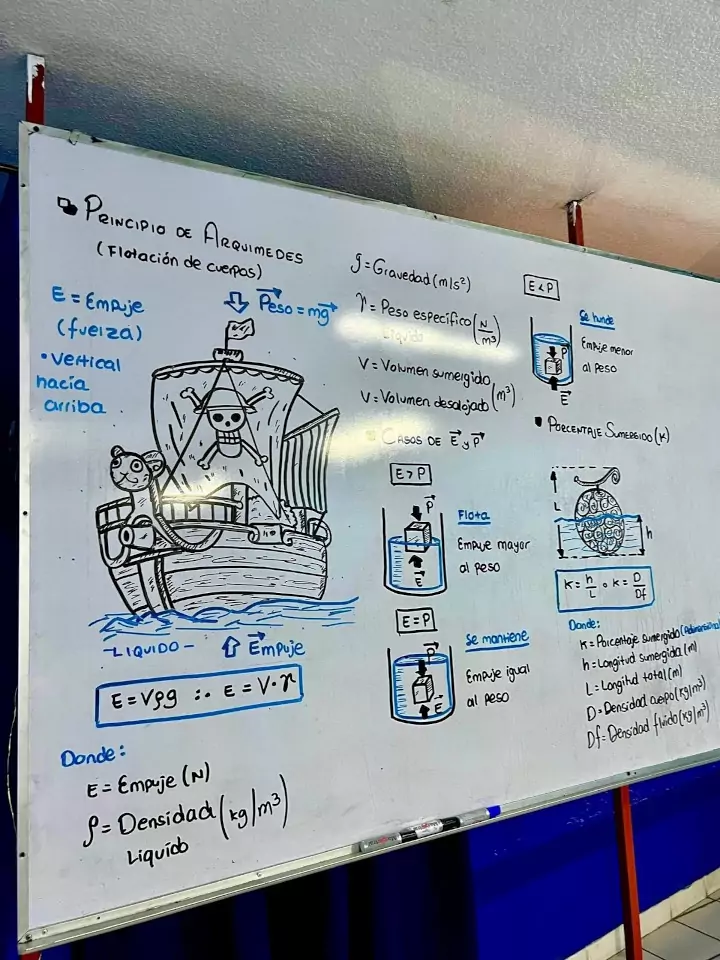 PRINCIPIO DE ARQUIMEDES
(Flotación de cuerpos)
E = Empuje
(fuerza)
• vertical
hacia
arriba
Peso = mg
LIQUIDO
Empuje
E = Vρg ∴ E = V·γ
Donde:
E = Empuje (N)
ρ = Densidad (kg/m³)
Liquido
g = Gravedad (m/s²)
γ = Peso específico (N/m³)
Liquido
V = Volumen sumergido
V = Volumen desalojado (m³)
CASOS DE E y P
E > P
P
E
Flota
Empuje mayor
al peso
E = P
P
E
Se mantiene
Empuje igual
al peso
E < P
P
E
Se hunde
Empuje menor
al peso
PORCENTAJE SUMERGIDO (K)
L
h
K = h/L o K = D/Df
Donde:
K = Porcentaje sumergido
h = Longitud sumergida (m)
L = Longitud total (m)
D = Densidad cuerpo (kg/m³)
Df = Densidad fluido (kg/m³)